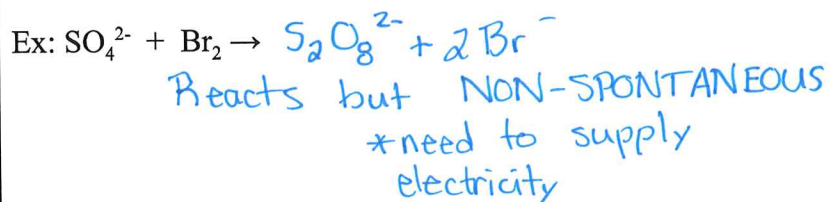 Ex: SO₄²⁻ + Br₂ → S₂O₈²⁻ + 2Br⁻
Reacts but NON-SPONTANEOUS
*need to supply
electricity